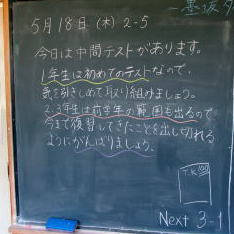 5月18日 (木) 2-5
今日は中間テストがあります。
1年生は初めてのテストなので、
気を引きしめて取り組みましょう。
2.3年生は前学年の範囲も出るので
今まで復習してきたことを出し切れる
ようにがんばりましょう。
T.K 100
Next 3-1